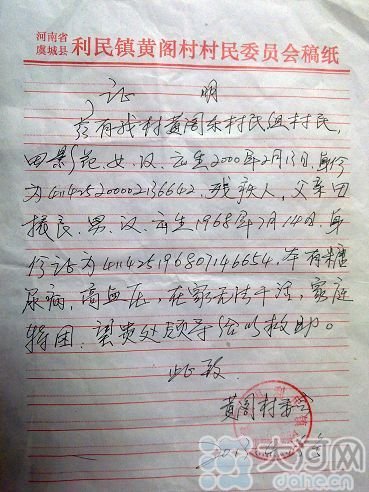 河南省
虞城县 利民镇黄阁村村民委员会稿纸
证 明
兹有我村黄阁东村民组村民,
田影 、女、汉、出生2000年2月13日,身份
为411425200002136642、残疾人,父亲田
振良、男、汉、出生1968年7月14日,身
份证为411425196807146654、本有糖
尿病,高血压,在家无法干活,家庭
特困,望贵处领导给以救助。
此致
黄阁村委会
大河网
dahe.cn